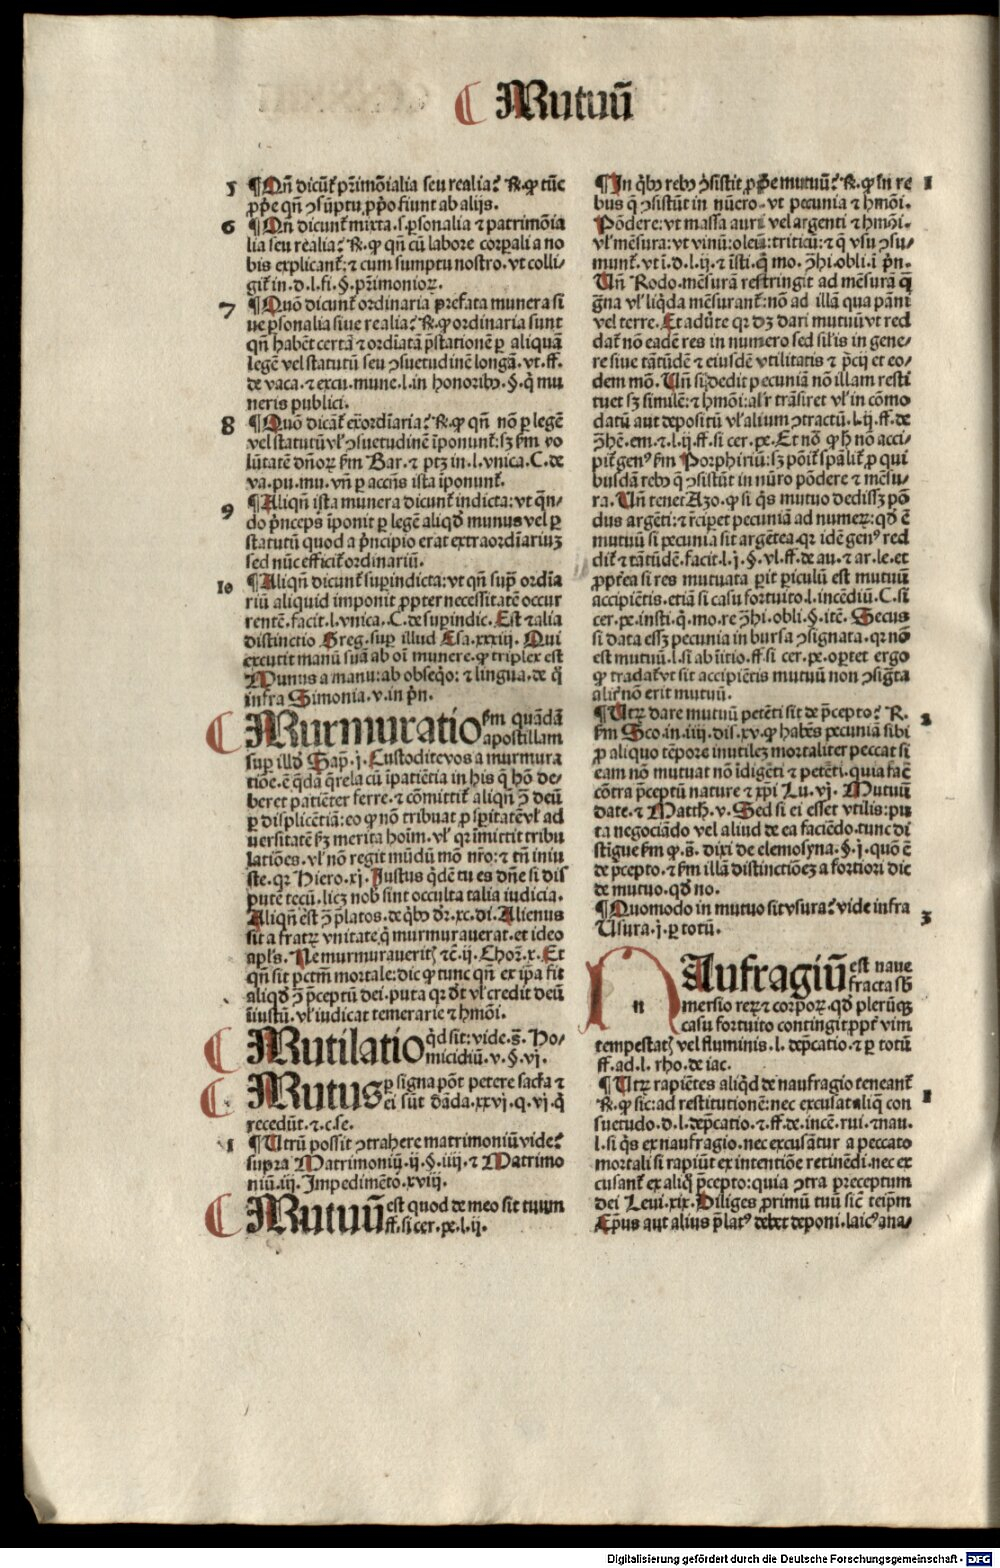 Mutuū
5 ¶Qn̄ dicūt̄ pr̄imōialia seu realia? R. ꝙ tūc
ꝓpe qn̄ ꝯsūptu ꝓpo fiunt ab alijs.
6 ¶Qn̄ dicunt̄ mixta. s. ꝑsonalia ⁊ patrimōia
lia seu realia? R. ꝙ qn̄ cū labore corꝑali a no
bis explicant̄: ⁊ cum sumptu nostro. vt colli-
git̄ in. d. l. fi. §. pr̄imonioꝝ.
7 ¶Quō dicunt̄ ordinaria prefata munera si
ue ꝑsonalia siue realia? R. ꝙ ordinaria sunt
qn̄ habēt certā ⁊ ordīatā p̄stationē ꝑ aliquā
legē vel statutū seu ꝯsuetudinē longā. vt. ff.
de vaca. ⁊ excu. mune. l. in honoribꝰ. §. q̇ mu
neris publici.
8 ¶Quō dicāt̄ exordīaria? R. ꝙ qn̄ nō ꝑ legē
vel statutū vl̓ ꝯsuetudinē īponunt̄: sꝫ ẜm vo
lūtatē dn̄oꝝ ẜm Bar. ⁊ ptꝫ in. l. vnica. C. de
va. pu. mu. vn̄ ꝑ accn̄s ista īponunt̄.
9 ¶Aliqn̄ ista munera dicunt̄ indicta: vt qn̄-
do p̄nceps īponit ꝑ legē aliqd̓ munus vel ꝑ
statutū quod a p̄ncipio erat extraordīariuꝫ
sed nūc efficit̄ ordinariū.
10 ¶Aliqn̄ dicunt̄ suꝑindicta: vt qn̄ sup̄ ordīa
riū aliquid imponit ꝓpter necessitatē occur
rentē. facit. l. vnica. C. de suꝑindic. Est ⁊ alia
distinctio Greg. suꝑ illud Esa. xxxiij. Qui
excutit manū suā ab oī munere. ꝙ triplex est
Munus a manu: ab obseq̇o: ⁊ lingua. de q̇
infra Simonia. v. in pn̄.
Murmuratio ẜm quādā
apostillam
suꝑ illd̓ Sap̄. j. Custodite vos a murmura
tiōe. ē q̄dā q̄rela cū īpatiētia in his q̄ hō de-
beret patiēter ferre. ⁊ cōmittit̄ aliqn̄ ꝯ deū
ꝑ displicētiā: eo ꝙ nō tribuat ꝓsꝑitatē vl̓ ad
uersitatē ẜꝫ merita hoīm. vl̓ qꝛ īmittit tribu
latiōes. vl̓ nō regit mūdū mō nr̄o: ⁊ tn̄ iniu
ste. qꝛ Hiero. xj. Iustus q̇dē tu es dn̄e si dis
putē tecū. licꝫ nob̓ sint occulta talia iudicia.
Aliqn̄ est ꝯ p̄latos. de q̇bꝰ dr̄. xc. di. Alienus
sit a fratꝝ vnitate q̇ murmurauerat. et ideo
apl̓s. Ne murmuraueritꝭ ⁊c̄. ij. Chor̄. x. Et
qn̄ sit pctm̄ mortale: dic ꝙ tunc qn̄ ex ip̄a fit
aliqd̓ ꝯ p̄ceptū dei. puta qꝛ dr̄ vl̓ credit deū
īiustū. vl̓ iudicat temerarie ⁊ hmōi.
Mutilatio q̇d sit: vide. s̄. Ho-
micidiū. v. §. vj.
Mutus ꝑ signa pōt petere sacr̄a ⁊
ei sūt dāda. xxvj. q. vj. q̇
recedūt. ⁊. c. se.
1 ¶Utrū possit ꝯtrahere matrimoniū vide?
supra Matrimoniū. ij. §. iiij. ⁊ Matrimo
niū. iij. Impedimēto. xviij.
Mutuū est quod de meo sit tuum
ff. si cer. pe. l. ij.
¶In q̇bꝰ rebꝰ ꝯsistit ꝓpe mutuū? R. ꝙ in re 1
bus q̄ ꝯsistūt in nūero. vt pecunia ⁊ hmōi.
Pōdere: vt massa auri vel argenti ⁊ hmōi.
vl̓ mēsura: vt vinū: oleū: triticū: ⁊ q̄ vsu ꝯsu-
munt̄. vt ī. d. l. ij. ⁊ īsti. q̇. mo. ꝯhi. obli. ī pn̄.
Un̄ Rodo. mēsurā restringit ad mēsurā q̄
gn̄a vl̓ liq̇da mēsurant̄: nō ad illā qua pāni
vel terre. Et aduˀte qꝛ dꝫ dari mutuū vt red
dat̄ nō eadē res in numero sed sil̓is in gene-
re siue tātūdē ⁊ eiusdē vtilitatis ⁊ p̄cij et eo-
dem mō. Un̄ si dedit pecuniā nō illam resti
tuet sꝫ similē: ⁊ hmōi: al̓r trāsiret vl̓ in cōmo
datū aut depositū vl̓ alium ꝯtractū. l. ij. ff. de
ꝯhē. em. ⁊. l. ij. ff. si cer. pe. Et nō ꝙ h̓ nō acci-
pit̄ genꝰ ẜm Porphiriū: sꝫ pōit̄ sp̄alit̄ ꝓ qui
busdā rebꝰ q̄ ꝯsistūt in nūro pōdere ⁊ mēsu-
ra. Un̄ tenet Azo. ꝙ si q̇s mutuo dedissꝫ pō
dus argēti: ⁊ rēcipet pecuniā ad numeꝝ: qd̓ ē
mutuū si pecunia sit argētea. qꝛ idē genꝰ red
dit̄ ⁊ tātūdē. facit. l. j. §. vl. ff. de au. ⁊ ar. le. et
ꝓpt̓ea si res mutuata ꝑit ꝑiculū est mutuū
accipiētis. etiā si casu fortuito. l. incēdiū. C. si
cer. pe. insti. q̇. mo. re ꝯhi. obli. §. itē. Secus
si data essꝫ pecunia in bursa ꝯsignata. qꝛ nō
est mutuū. l. si ab īitio. ff. si cer. pe. oꝑtet ergo
ꝙ tradat̄ vt sit accipiētis mutuū non ꝯsigt̄a
alit̓ nō erit mutuū.
¶Utꝝ dare mutuū petēti sit de p̄cepto? R. 2
ẜm Sco. in. iiij. dis. xv. ꝙ habēs pecuniā sibi
ꝓ aliquo tēpore inutileꝫ mortaliter peccat si
eam nō mutuat nō īdigēti ⁊ petēti. quia facē
cōtra p̄ceptū nature ⁊ xp̄i Lu. vj. Mutuū
date. ⁊ Matth. v. Sed si ei esset vtilis: pu
ta negociādo vel aliud de ea faciēdo. tunc di
stīgue ẜm ꝙ. s̄. dixi de elemosyna. §. j. quō ē
de p̄cepto. ⁊ ẜm illā distinctiōeꝫ a fortiori dic
de mutuo. qd̓ no.
¶Quomodo in mutuo sit vsura? vide infra 3
Usura. j. ꝑ totū.
n
Naufragiū est naue
fracta sb̓
mersio reꝝ ⁊ corpoꝝ. qd̓ plerūqꝫ
casu fortuito contingit ꝓpt̓ vim
tempestatꝭ vel fluminis. l. dep̄catio. ⁊ ꝑ totū
ff. ad. l. rho. de iac.
¶Utꝝ rapiētes aliqd̓ de naufragio teneant̄ 1
R. ꝙ sic: ad restitutionē: nec excusat aliq̄ con
suetudo. d. l. dep̄catio. ⁊. ff. de incē. rui. ⁊ nau.
l. si q̇s ex naufragio. nec excusātur a peccato
mortali si rapiūt ex intentiōe retinēdi. nec ex
cusant̄ ex aliq̇ p̄cepto: quia ꝯtra preceptum
dei Leui. xix. Diliges ꝓximū tuū sicut̄ teip̄m
Ep̄us aut alius p̄latꝰ debet deponi. laicꝰ ana-
Digitalisierung gefördert durch die Deutsche Forschungsgemeinschaft - DFG